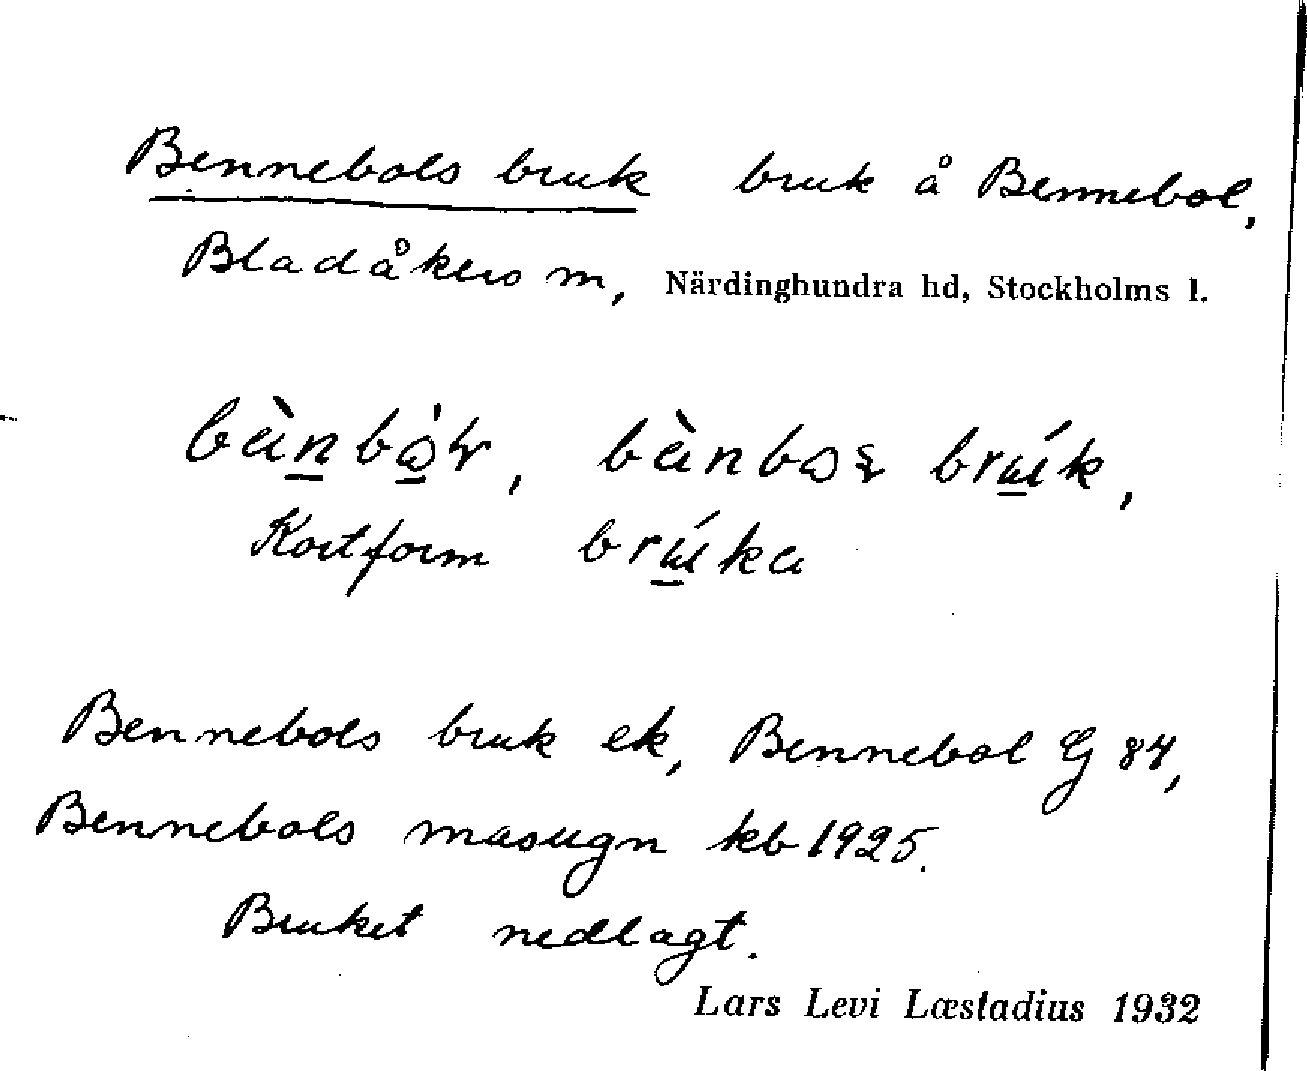 Bennebols bruk bruk å Bennebol,
Bladåkers sn, Närdinghundra hd, Stockholms l.
Kortform
Bennebols bruk ek, Bennebol G 84,
Bennebols masugn kb 1925.
Bruket nedlagt.
Lars Levi Læstadius 1932